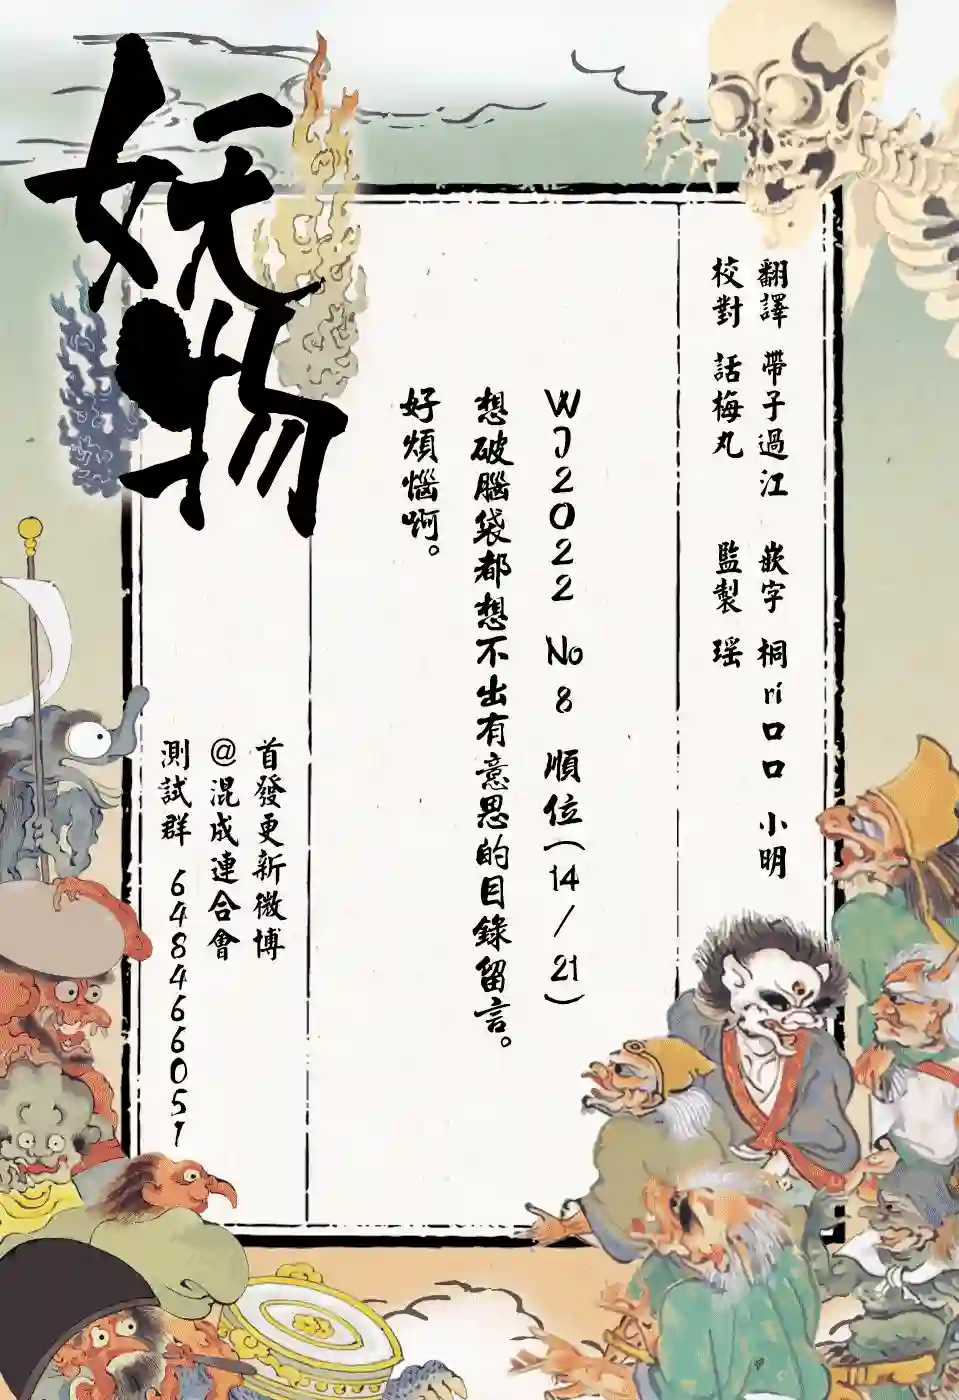 妖物
翻譯 帶子過江 嵌字 桐ri口口 小明
校對 話梅丸 監製 瑶
WJ2022 No8 順位(14/21)
想破腦袋都想不出有意思的目錄留言。
好煩惱啊。
首發更新微博
@混成連合會
測試群 648466051